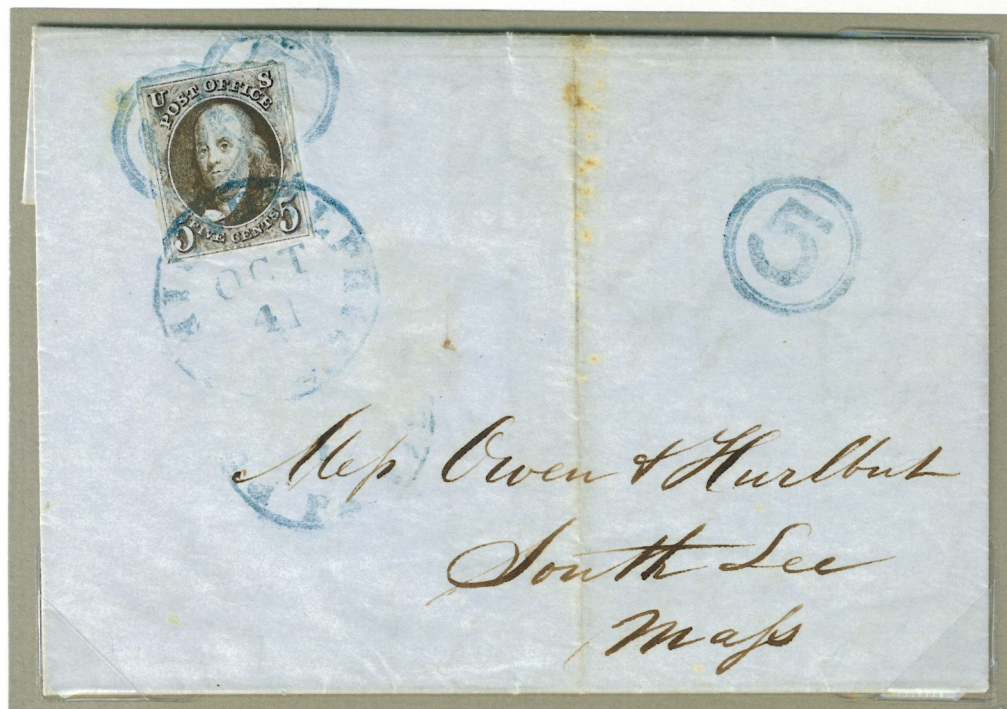 U S
POST OFFICE
5 FIVE CENTS 5
OCT
41
5
Mess Owen & Hurlbut
South Lee
Mass